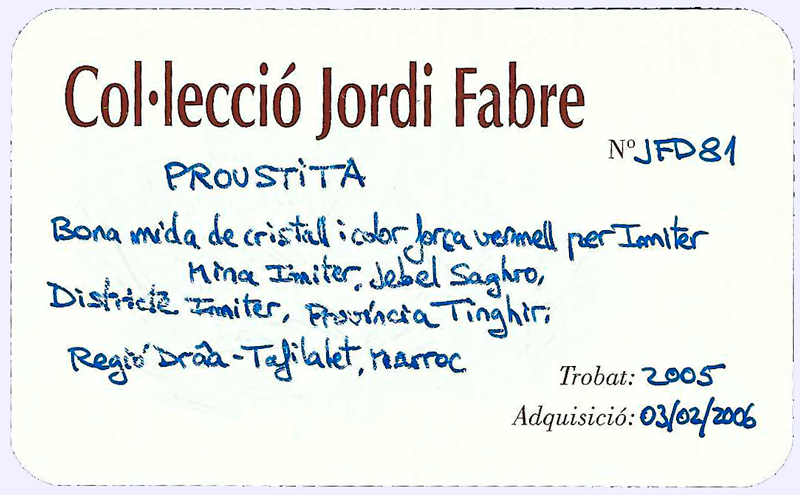 Col·lecció Jordi Fabre
Nº JFD81
PROUSTITA
Bona mida de cristall i color força vermell per Imiter
Mina Imiter, Jebel Saghro,
Districte Imiter, Província Tinghir,
Regió Drâa-Tafilalet, Marroc
Trobat: 2005
Adquisició: 03/02/2006